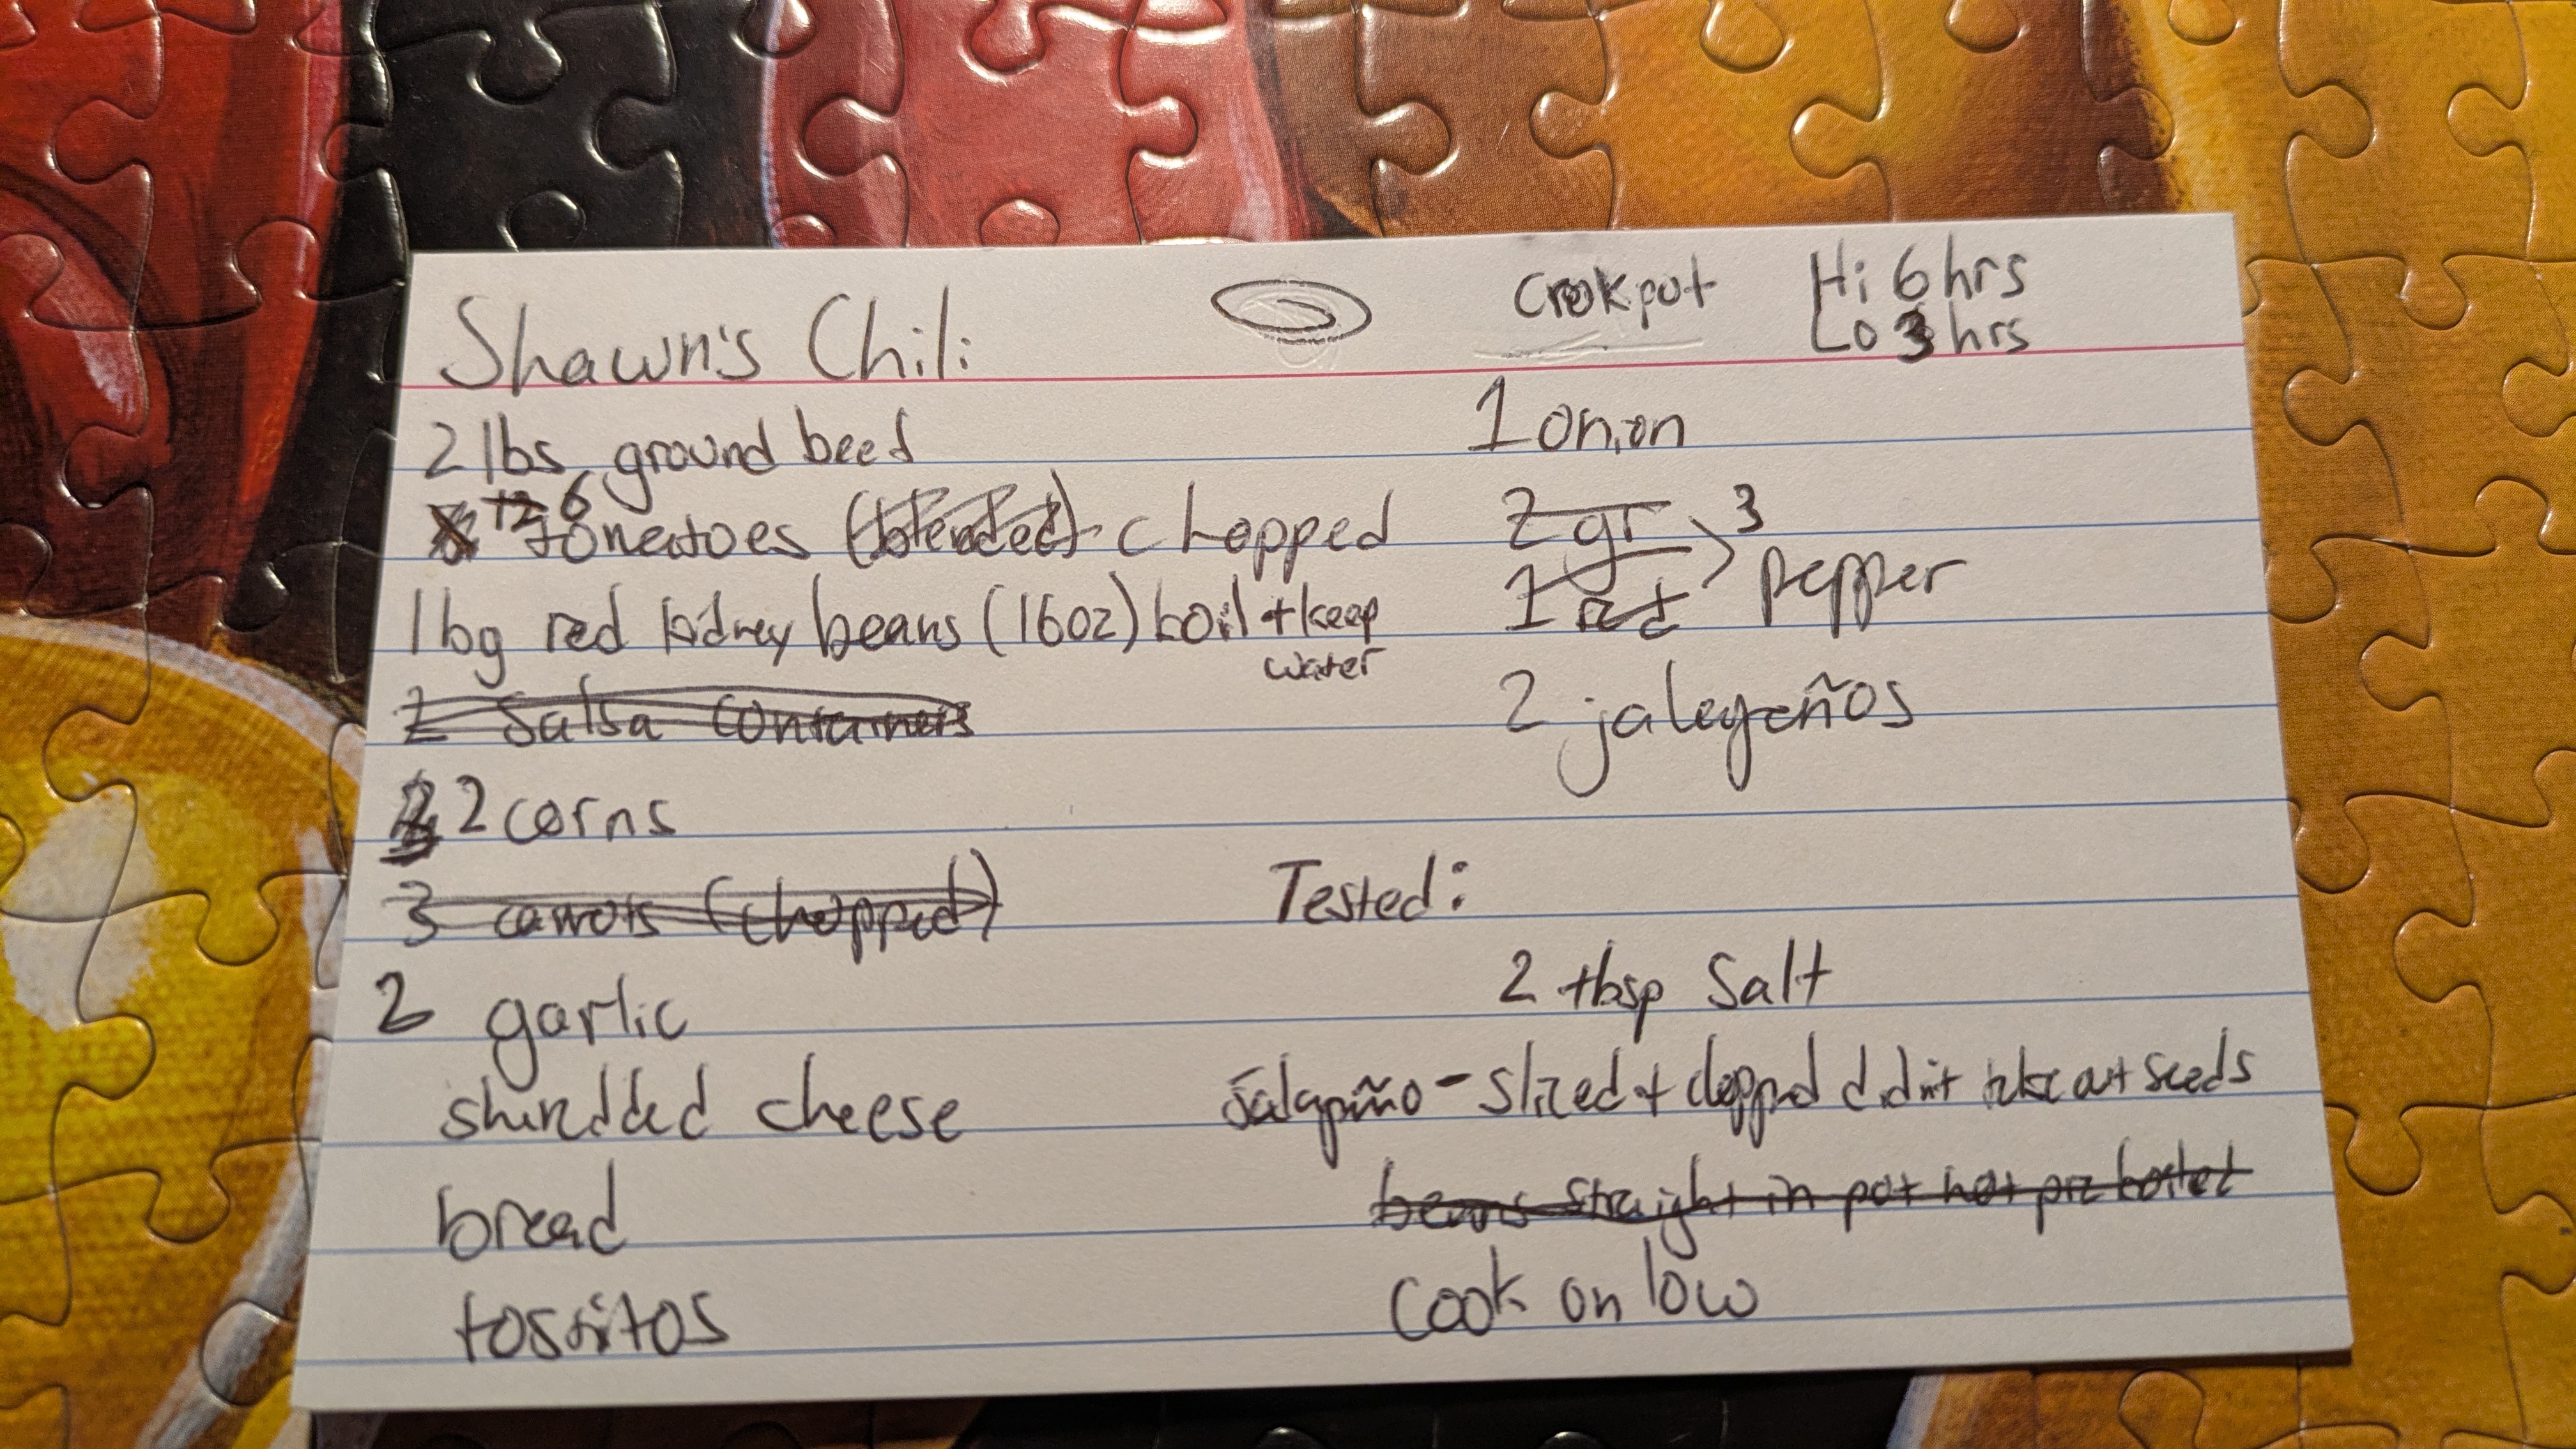 Shawn's Chili
Crokpot
Hi 6 hrs
Lo 3 hrs
2 lbs ground beef
12 6 tomatoes (blended) chopped
1 bg red kidney beans (16oz) boil + keep
water
2 salsa containers
2 corns
3 carrots (chopped)
2 garlic
shredded cheese
bread
tostitos
1 onion
2 gr
3
1 red
pepper
2 jalepeños
Tested:
2 tbsp Salt
Jalapeño - sliced + chopped didn't take out seeds
beans straight in pot not pre boiled
cook on low